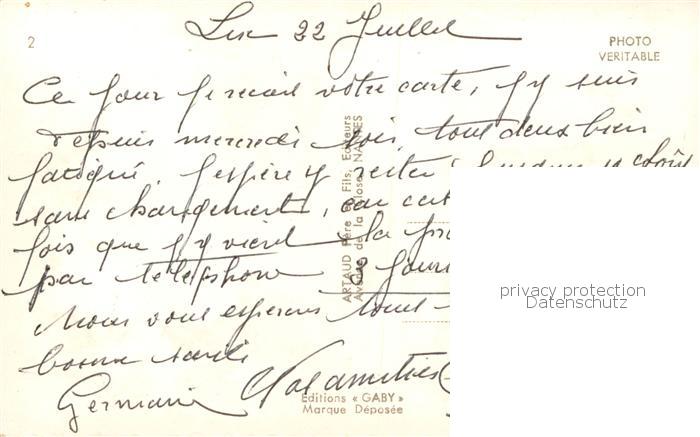 22 Juillet
2
PHOTO
VERITABLE
Ce jour je reçois votre carte, j'y suis
depuis mercredi soir, tout deux bien
fatigué. J'espère y rester
sans changement, car
fois que j'y viens la
par téléphone 8 jours
Nous vous espérons tous
bonne santé
Germaine
ARTAUD Père et Fils, Editeurs
Editions « GABY »
Marque Déposée
privacy protection
Datenschutz